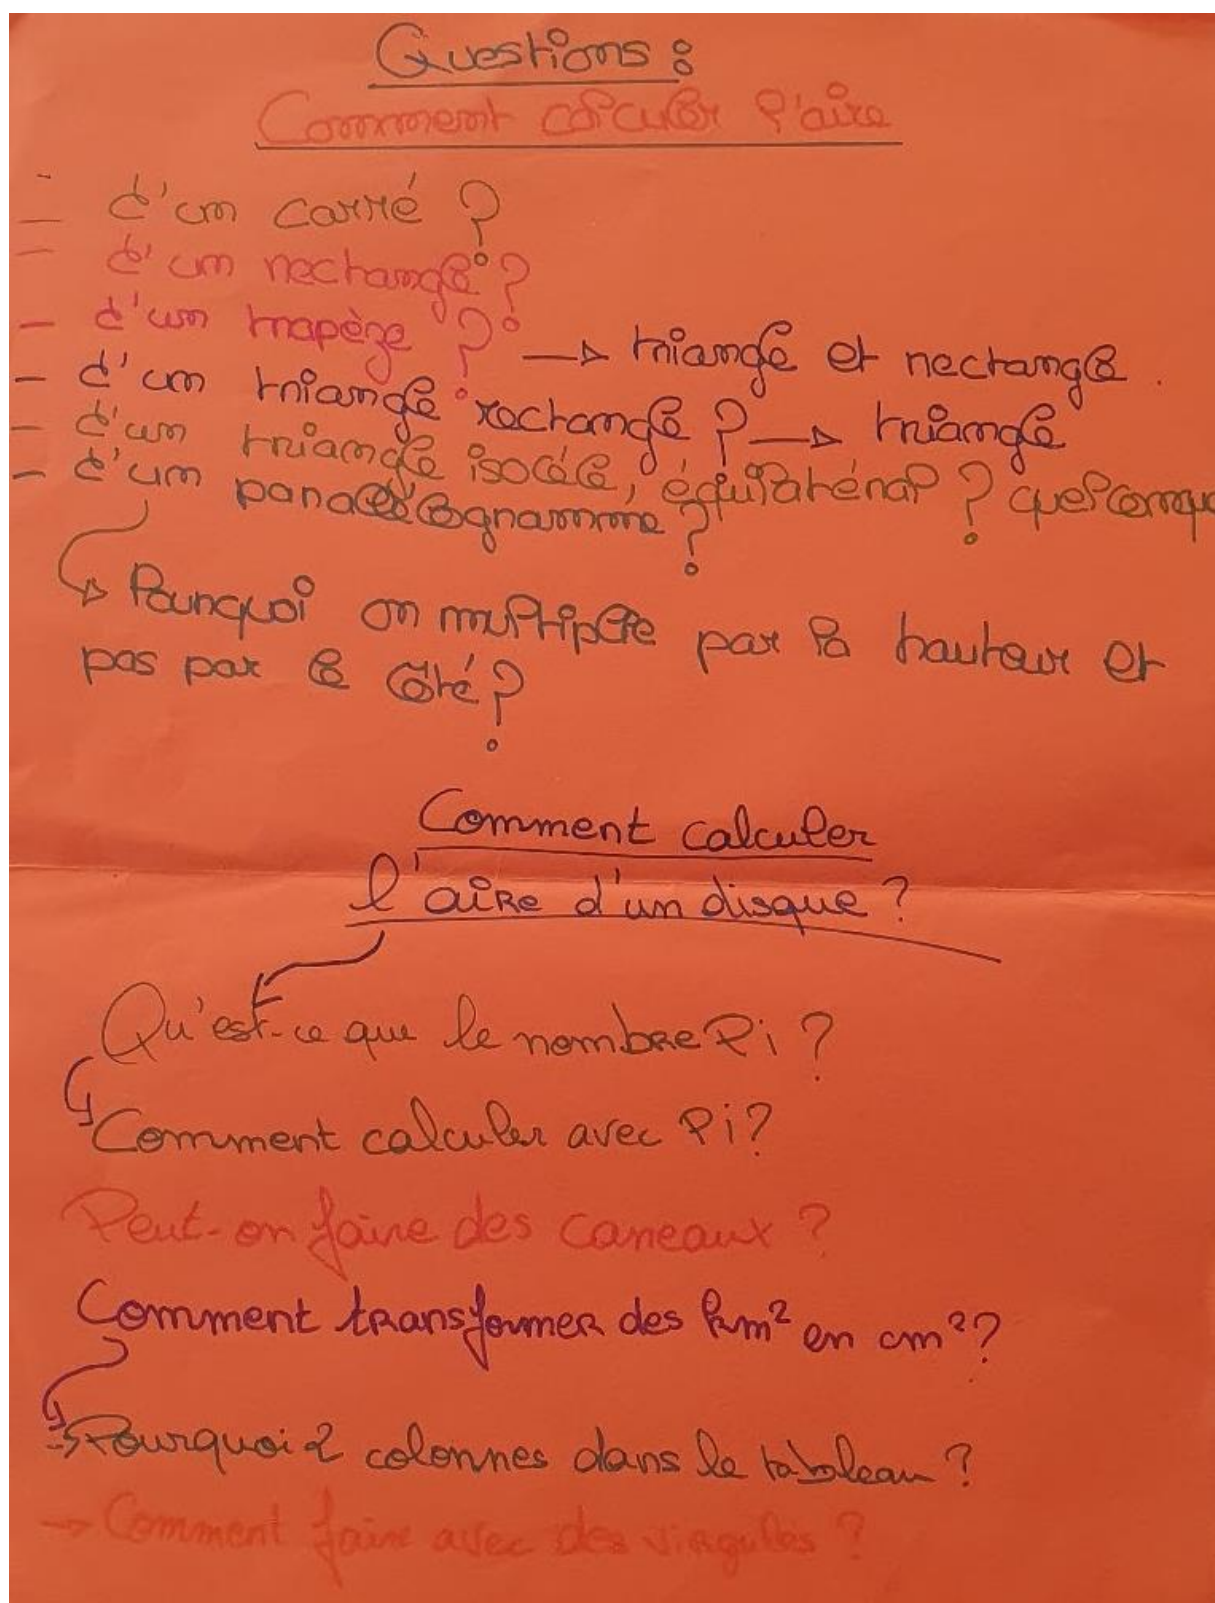 Questions :
Comment calculer l'aire
- d'un carré ?
- d'un rectangle ?
- d'un trapèze ? → triangle et rectangle.
- d'un triangle rectangle ? → triangle
- d'un triangle isocèle, équilatéral ? quelconqu
- d'un parallélogramme ?
→ Pourquoi on multiplie par la hauteur et
pas par le côté ?
Comment calculer
l'aire d'un disque ?
Qu'est-ce que le nombre Pi ?
Comment calculer avec Pi ?
Peut-on faire des carreaux ?
Comment transformer des km² en cm² ?
→ Pourquoi 2 colonnes dans le tableau ?
→ Comment faire avec des virgules ?